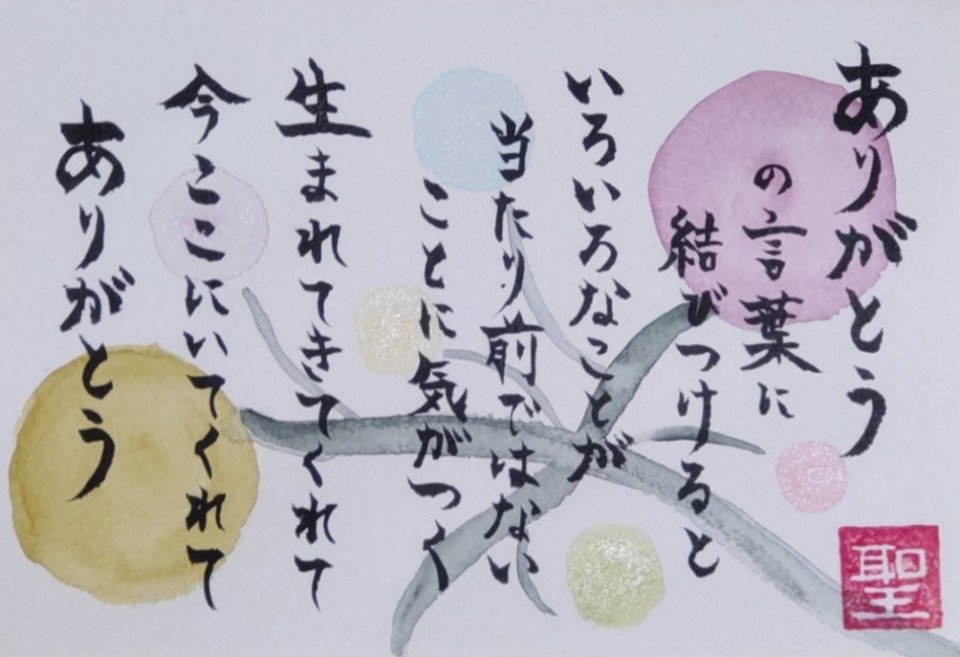 ありがとう
の言葉に
結びつけると
いろいろなことが
当たり前ではない
ことに気がつく
生まれてきてくれて
今ここにいてくれて
ありがとう
聖